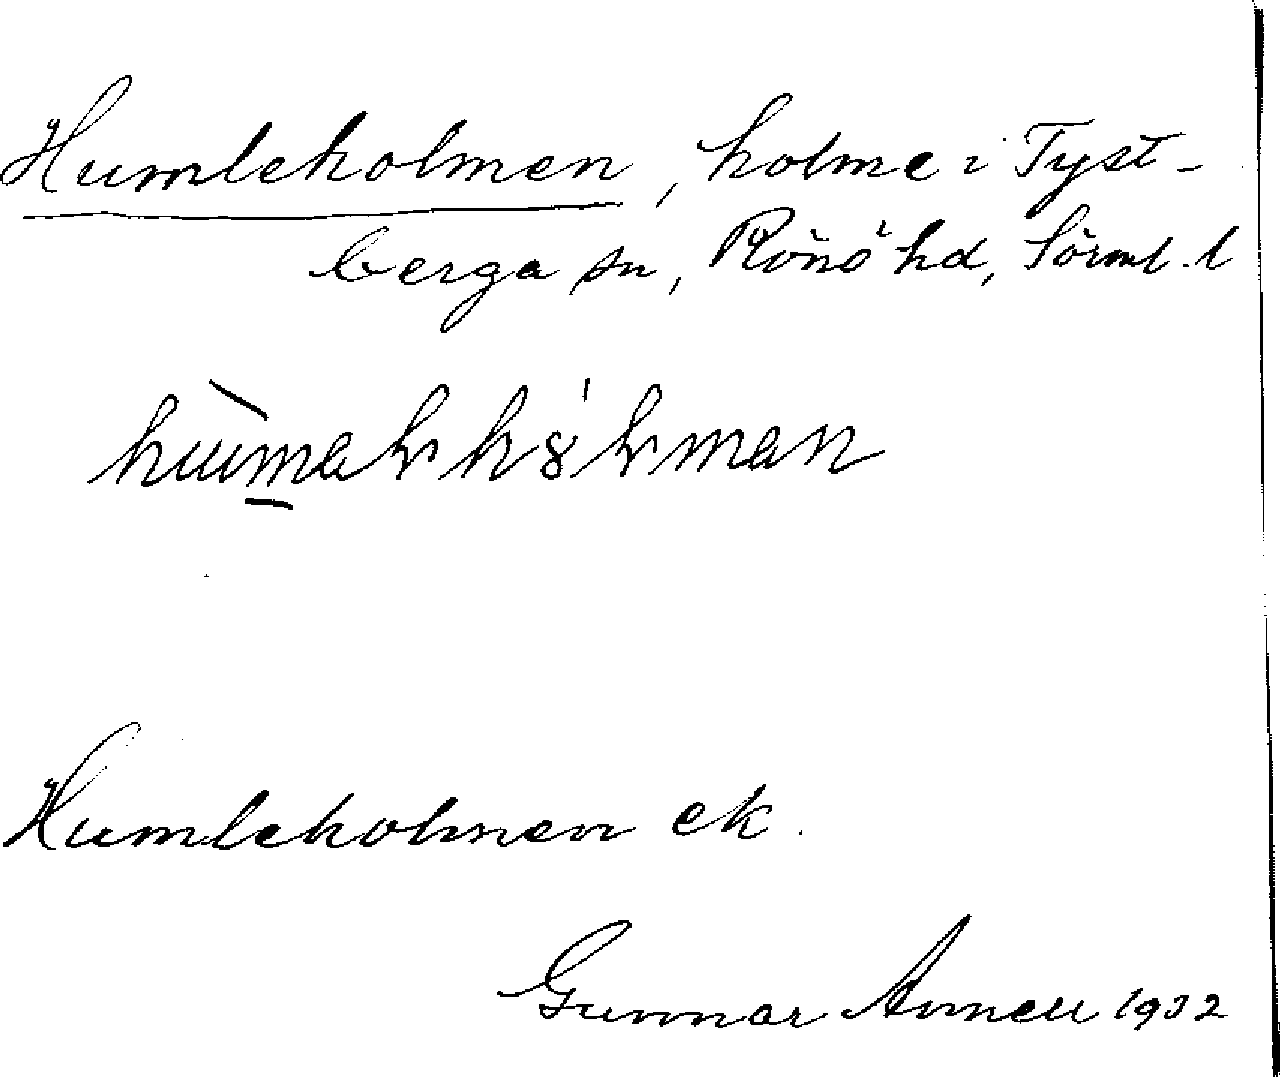 Humleholmen, holme i Tyst-
berga sn, Rönö hd, Sörml. l
Humleholmen ek.
Gunnar Annell 1932